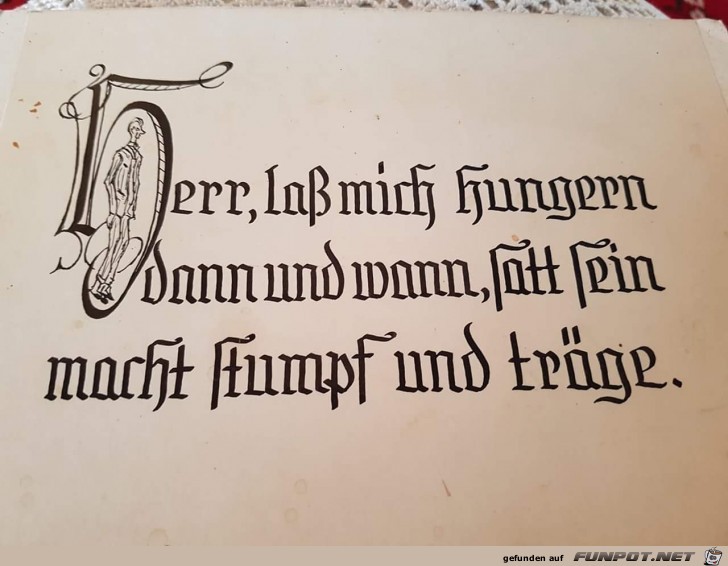 Herr, laß mich hungern
dann und wann, satt sein
macht stumpf und träge.
gefunden auf FUNPOT.NET